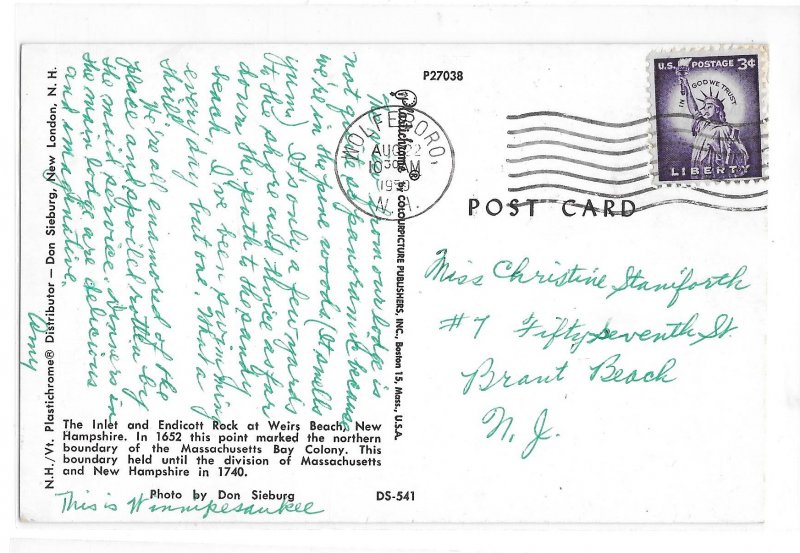 P27038
U.S. POSTAGE 3¢
IN GOD WE TRUST
LIBERTY
WOLFEBORO,
AUG 22
M
N.H.
POST CARD
Miss Christine Staniforth
#7 Fifty seventh St.
Brant Beach
N.J.
The from our lodge is
not quite as panoramic because
we're in the pine woods (It smells
yum) It's only a few yards
to the shore and twice as far
down the path to the sandy
beach. I've been swimming
every day but one. What a
thrill.
We're all enamored of the
place and spoiled rotten by
the maid service. Dinners in
the main lodge are delicious
and imaginative.
Amy
Plastichrome® by COLOURPICTURE PUBLISHERS, INC., Boston 15, Mass., U.S.A.
N.H./Vt. Plastichrome® Distributor — Don Sieburg, New London, N. H.
The Inlet and Endicott Rock at Weirs Beach, New
Hampshire. In 1652 this point marked the northern
boundary of the Massachusetts Bay Colony. This
boundary held until the division of Massachusetts
and New Hampshire in 1740.
Photo by Don Sieburg
DS-541
This is Winnipesaukee